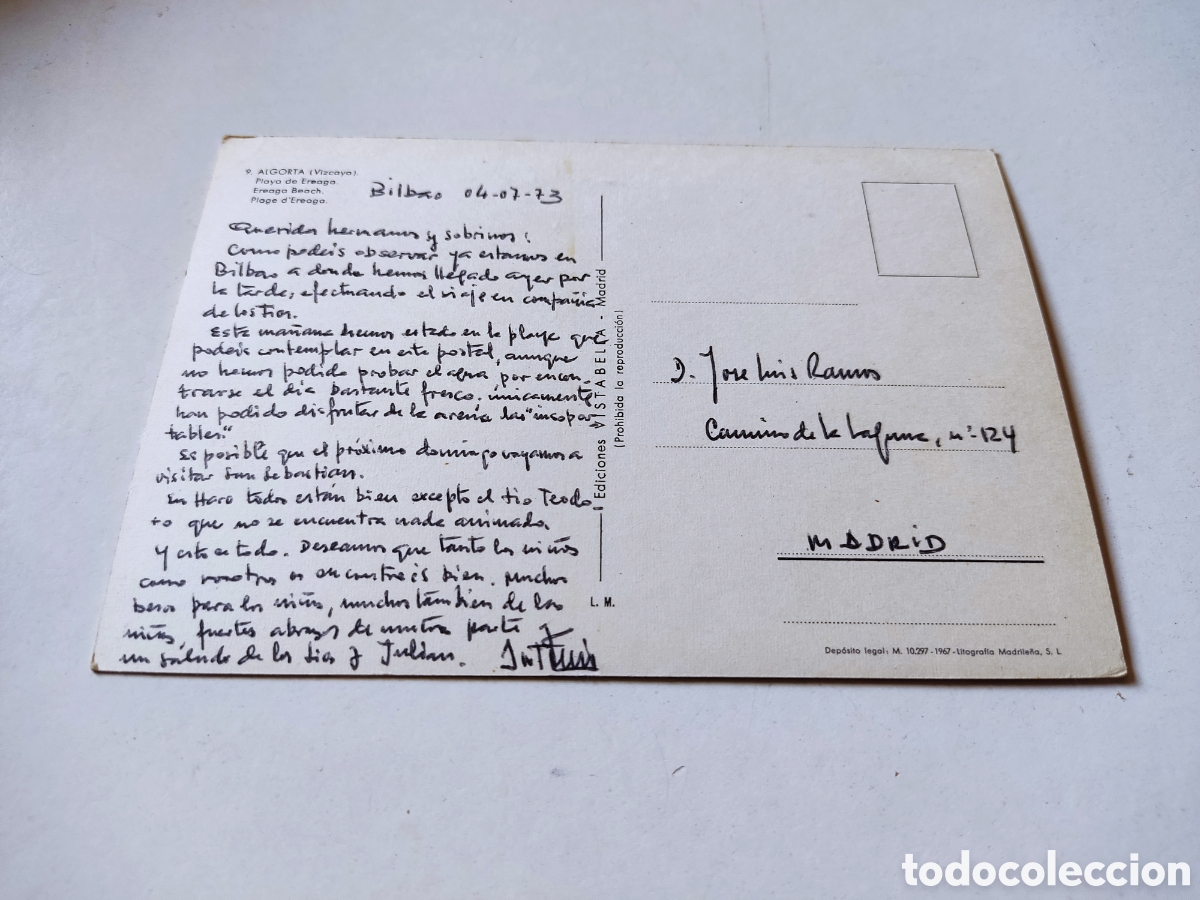 9. ALGORTA (Vizcaya).
Playa de Ereaga.
Ereaga Beach.
Plage d'Ereaga.
Bilbao 04-07-73
Queridos hermanos y sobrinos:
Como podeis observar ya estamos en
Bilbao a donde hemos llegado ayer por
la tarde, efectuando el viaje en compañia
de los tios.
Esta mañana hemos estado en la playa que
podeis contemplar en esta postal, aunque
no hemos podido probar el agua por encon-
trarse el dia bastante fresco. únicamente
han podido disfrutar de la arena las "insopor
tables"
Es posible que el próximo domingo vayamos a
visitar San Sebastian.
En Haro todos están bien excepto el tio Teodo
ro que no se encuentra nada animado.
Y esto es todo. Deseamos que tanto los niños
como vosotros os encontreis bien. Muchos
besos para los niños, muchos tambien de las
niñas, fuertes abrazos de nuestra parte y
un saludo de los tios y Julian.
Ediciones VISTABELLA - Madrid
(Prohibida la reproducción)
L. M.
D. Jose Luis Ramos
Camino de la Laguna, nº-124
MADRID
Depósito legal: M. 10.297-1967-Litografía Madrileña, S. L.
todocoleccion